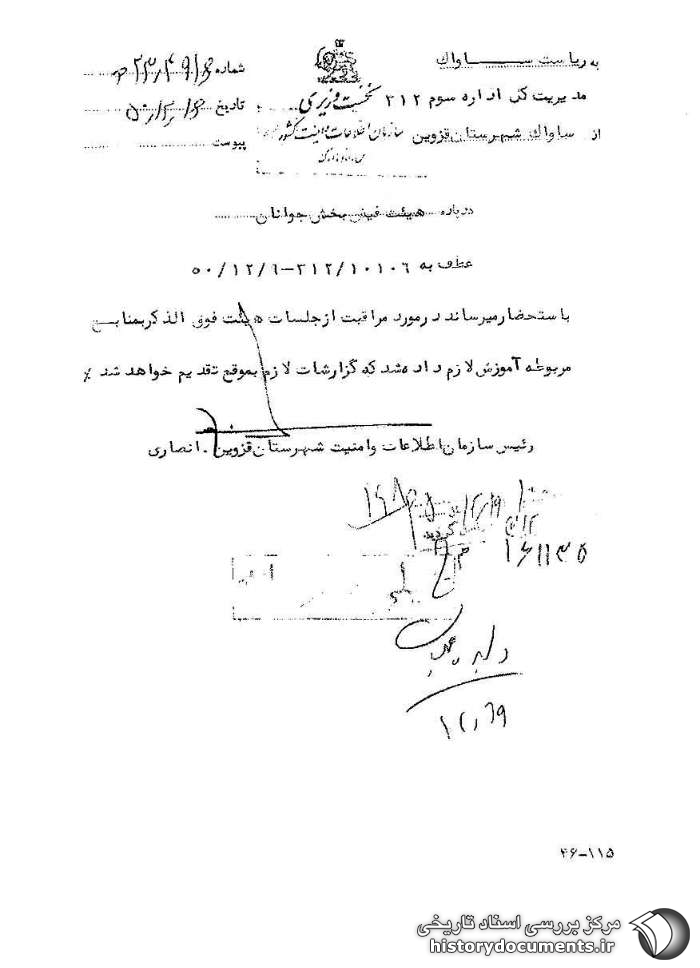 به ریاست ساواک
مدیریت کل اداره سوم ۳۱۲
از ساواک شهرستان قزوین
نخست وزیری
سازمان اطلاعات و امنیت کشور
س. ا. و. ا. ک
شماره
تاریخ
پیوست
درباره هیئت فینی بخش جوانان
عطف به ۳۱۲/۱۰۱۰۶-۵۰/۱۲/۶
باستحضار میرساند در مورد مراقبت از جلسات هیئت فوق الذکر بمنابع
مربوطه آموزش لازم داده شد که گزارشات لازم بموقع تقدیم خواهد شد٪
رئیس سازمان اطلاعات و امنیت شهرستان قزوین. انصاری
گردید
۱۶۱۱۳۵
۱۲٫۲۹
۴۶-۱۱۵
مرکز بررسی اسناد تاریخی
historydocuments.ir